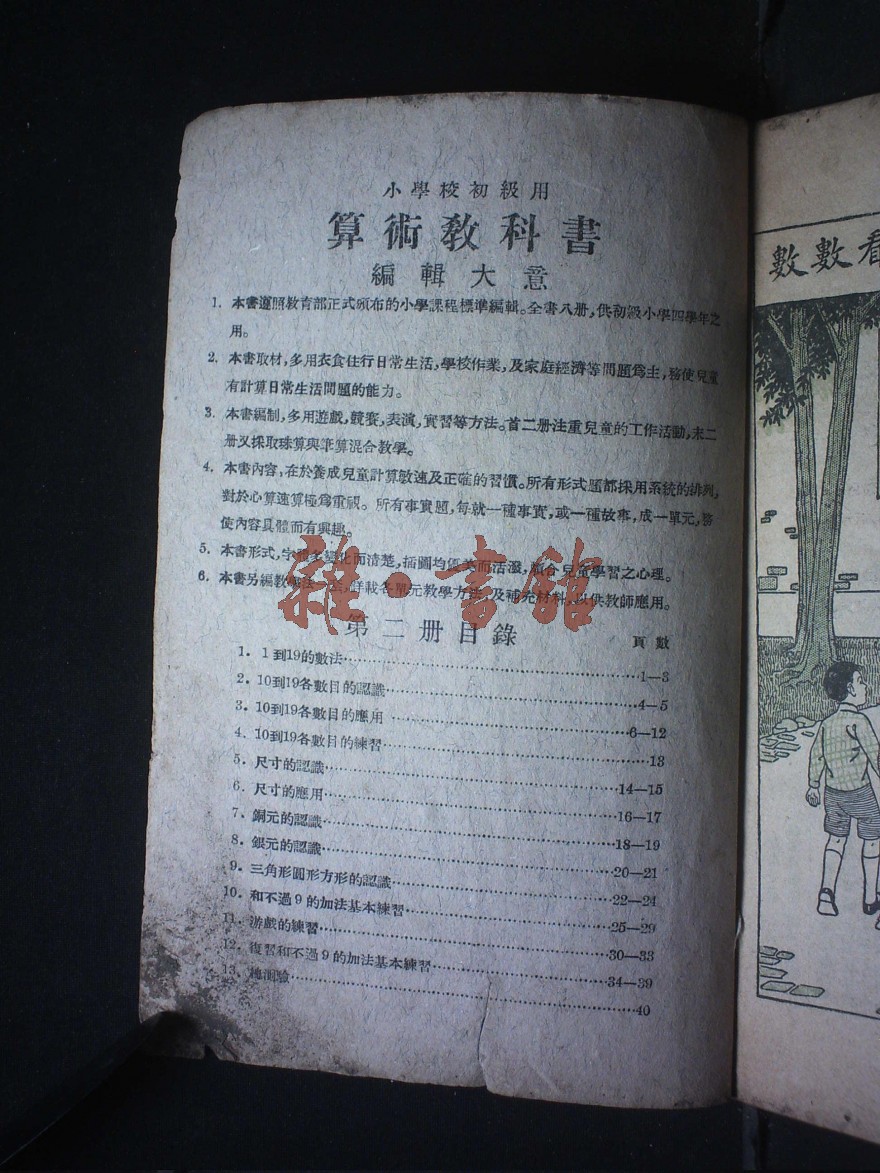 小學校初級用
算術教科書
編輯大意
1. 本書遵照教育部正式頒布的小學課程標準編輯。全書八册,供初級小學四學年之
用。
2. 本書取材,多用衣食住行日常生活,學校作業,及家庭經濟等問題爲主,務使兒童
有計算日常生活問題的能力。
3. 本書編制,多用遊戲,競賽,表演,實習等方法。首二册注重兒童的工作活動,末二
册又採取珠算與筆算混合教學。
4. 本書內容,在於養成兒童計算敏速及正確的習慣。所有形式題都採用系統的排列,
對於心算速算極爲重視。所有事實題,每就一種事實,或一種故事,成一單元,務
使內容具體而有興趣。
5. 本書形式,字體多變化而清楚,插圖均優美而活潑,頗合兒童學習之心理。
6. 本書另編教學法一套,詳載各單元教學方法,及補充材料,以供教師應用。
雜·書館
第二册目錄
頁數
1. 1到19的數法……1—3
2. 10到19各數目的認識……4—5
3. 10到19各數目的應用……6—12
4. 10到19各數目的練習……13
5. 尺寸的認識……14—15
6. 尺寸的應用……16—17
7. 銅元的認識……18—19
8. 銀元的認識……20—21
9. 三角形圓形方形的認識……22—24
10. 和不過9的加法基本練習……25—29
11. 游戲的練習……30—33
12. 複習和不過9的加法基本練習……34—39
13. 測驗……40
看數數